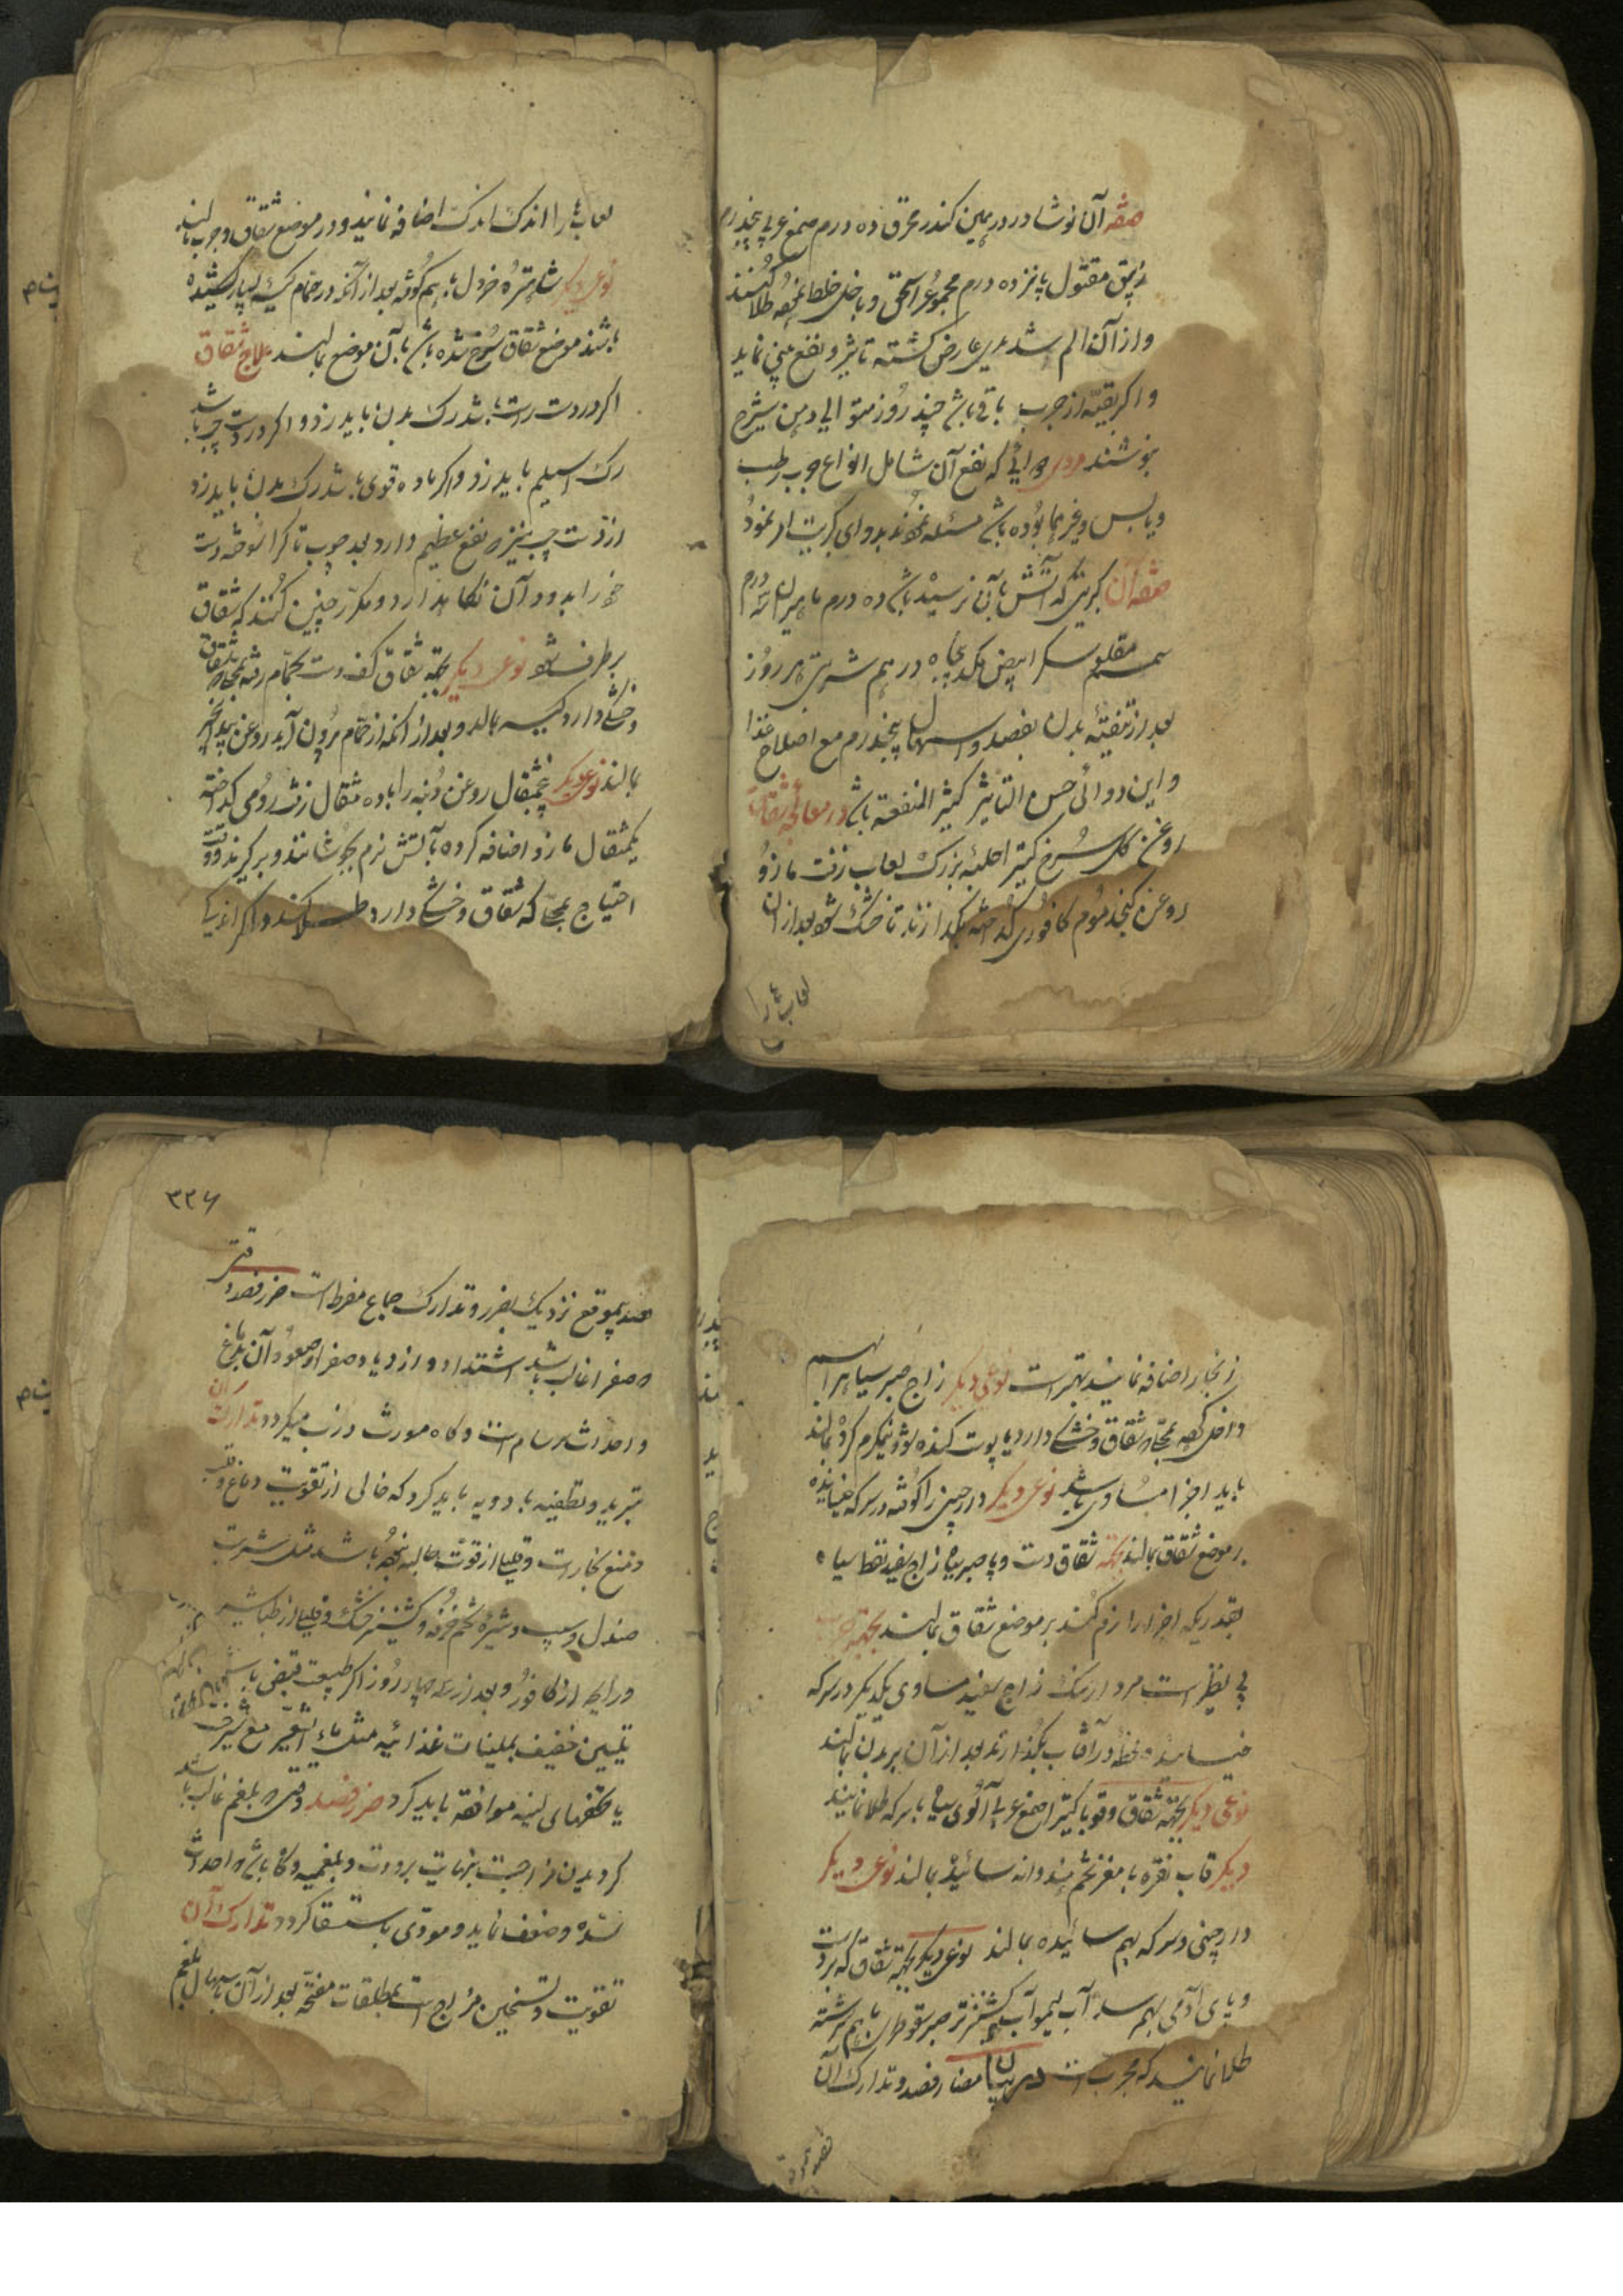 صفة آن نوشادر درهمین کندر محرق ده درم صمغ عربی پنجدرم
زیبق مقتول پانزده درم مجموع را سحق و با خل خلط نموده طلا کنند
و از آن الم شدیدی عارض کشته تاثیر و نفع بینی نماید
و اکر بقیه از جرب باقی باشد چند روز متوالی دهن شیرج
بنوشند دوائی که نفع آن شامل انواع جرب رطب
و یابس و غیرهما بوده باشد مسئله نمودند بدوای کبریت امر نمود
صفة آن کبریتی که آتش بآن نرسیده باشد ده درم مامیران سه درم
سمسم مقلو سکر ابیض یکدرهم شربتی هر روز
بعد از تنقیه بدن بفصد و اسهال پنجدرم مع اصلاح غذا
و این دوائی حسن التاثیر کثیر المنفعة باشد در معالجه شقاق
روغن کل سرخ کتیرا حلبه بزرک لعاب زفت مازو
روغن کنجد موم کافوری کداخته بکدازند تا خشک شود بعد از آن
لعابها را
لعابها را اندک اندک اضافه نمایند و در موضع شقاق و جرب بمالند
نوعی دیکر شاهتره خردل باهم کوفته بعد از آنکه در حمام کیسه بسیار کشیده
باشند موضع شقاق سرخ شده باشد بآن موضع بمالند علاج شقاق
اکر در دست راست باشد رک بدن باید زد و اکر در دست چپ باشد
رک اسیلم باید زد و اکر ماده قوی باشد رک بدن باید زد
از دست چپ نیز نفع عظیم دارد بعد چوب تاک را سوخته دست
خود را بدود آن نکاه دارد و مکرر چنین کنند که شقاق
برطرف شود نوعی دیکر بجهة شقاق کف دست بحمام رفته بجائیکه شقاق
و خشکی دارد کیسه بمالد و بعد از آنکه از حمام برون آید روغن بیدانجیر
بمالند نوعی دیکر پنجمثقال روغن دنبه را با ده مثقال زفت رومی کداخته
یکمثقال مازو اضافه کرده بآتش نرم بجوشانند و برکیرند و وقت
احتیاج بجائیکه شقاق و خشکی دارد طلا کنند و اکر اندکی
زنجار اضافه نمایند بهتر است نوعی دیکر زاج صبر سیاه را بهم
داخل کرده بجائیکه شقاق و خشکی دارد یا پوست کنده شود نیمکرم کرده بمالند
باید اجزا مساوی باشد نوعی دیکر دارچینی را کوفته در سرکه خیسانیده
بر موضع شقاق بمالند بجهة شقاق دست و پا صبر سیاه زاج سفید نفط سیاه
بقدریکه اجزا را نرم کند بر موضع شقاق بمالند بجهة جرب
بی نظیر است مردارسنک زاج سفید مساوی یکدیکر در سرکه
خیسانیده لحظه در آفتاب بکذارند بعد از آن بر بدن بمالند
نوعی دیکر بجهة شقاق و قوبا کتیرا صمغ عربی آلوی سیاه با سرکه طلا نمایند
دیکر قاب نقره با مغز تخم هندوانه سائیده بمالند نوعی دیکر
دارچینی و سرکه بهم سائیده بمالند نوعی دیکر بجهة شقاق که بر دست
و پای آدمی بهم رسد آب لیمو آب کشنیز تر صبر سقوطری باهم سرشته
طلا نمایند که مجرب است در بیان مضار فصد و تدارک آن
۳۳۶
فصد بیموقع نزدیک بضرر و تدارک جماع مفرط است ضرر فصد وقتی
که صفرا غالب باشد اشتداد و ازدیاد صفرا و صعود آن بدماغ
و احداث سرسام است و کاه مورث ذرب میکردد تدارک آن
تبرید و تطفیه بادویه باید کرد که خالی از تقویت دماغ و قلب
و منع بخارات و قلیلی از قوت جالبه نبوده باشد مثل شربت
صندل و سیب و شیره تخم خرفه و کشنیز خشک و قلیلی از طباشیر
و رایحه از کافور و بعد از سه چهار روز اکر طبیعت قبض باشد
تلیین خفیف بملینات غذائیه مثل ماء الشعیر مع شیرخشت
یا حقنهای لینه موافقه باید کرد ضرر فصد وقتی که بلغم غالب باشد
کردیدن مزاجست بنهایت برودت و بلغمیه و کاه باشد که احداث
سده و ضعف نماید و مودی باستسقا کردد تدارک آن
تقویت و تسخین مزاج است بمطلقات مفتحه بعد از آن باسهال بلغم